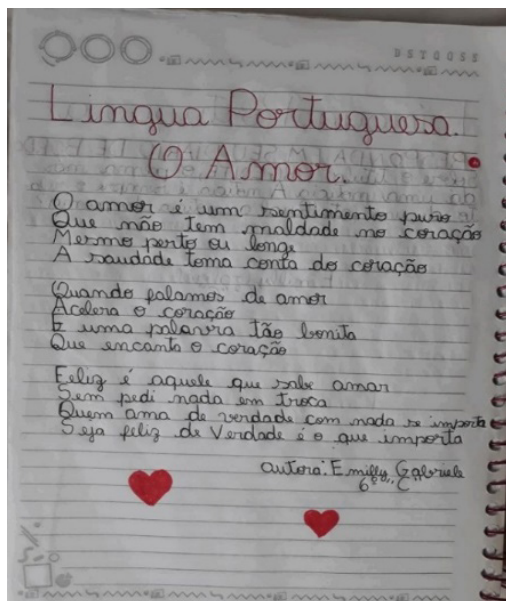 Língua Portuguesa.
O Amor.
O amor é um sentimento puro
Que não tem maldade no coração
Mesmo perto ou longe
A saudade toma conta do coração
Quando falamos de amor
Acelera o coração
É uma palavra tão bonita
Que encanta o coração
Feliz é aquele que sabe amar
Sem pedi nada em troca
Quem ama de verdade com nada se importa
Seja feliz de Verdade é o que importa
autora: Emilly Gabriele
6º "C"